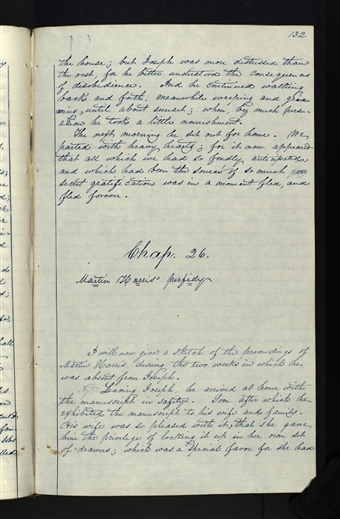 132
the house; but Joseph was more distressed than
the rest, for he better understood the consequences
of disobedience. And he continued walking
back and forth, meanwhile weeping and
until about sunset; when by much persu-
ation he took a little nourishment.
The next morning he set out for home. We
parted with heavy hearts; for it now appeared
that all which we had so fondly anticipated
and which had been the source of so much
secret gratification was in a moment fled, and
fled forever.
Chap. 26.
Martin Harris' perfidy
I will now give a sketch of the proceedings of
Martin Harris during the two weeks in which he
was absent from Joseph.
Leaving Joseph, he arrived at home with
the manuscript in safety. Soon after which he
exhibited the manuscript to his wife and family.
His wife was so pleased with it, that she gave
him the privilege of locking it up in her own set
of drawers; which was a special favor for she had